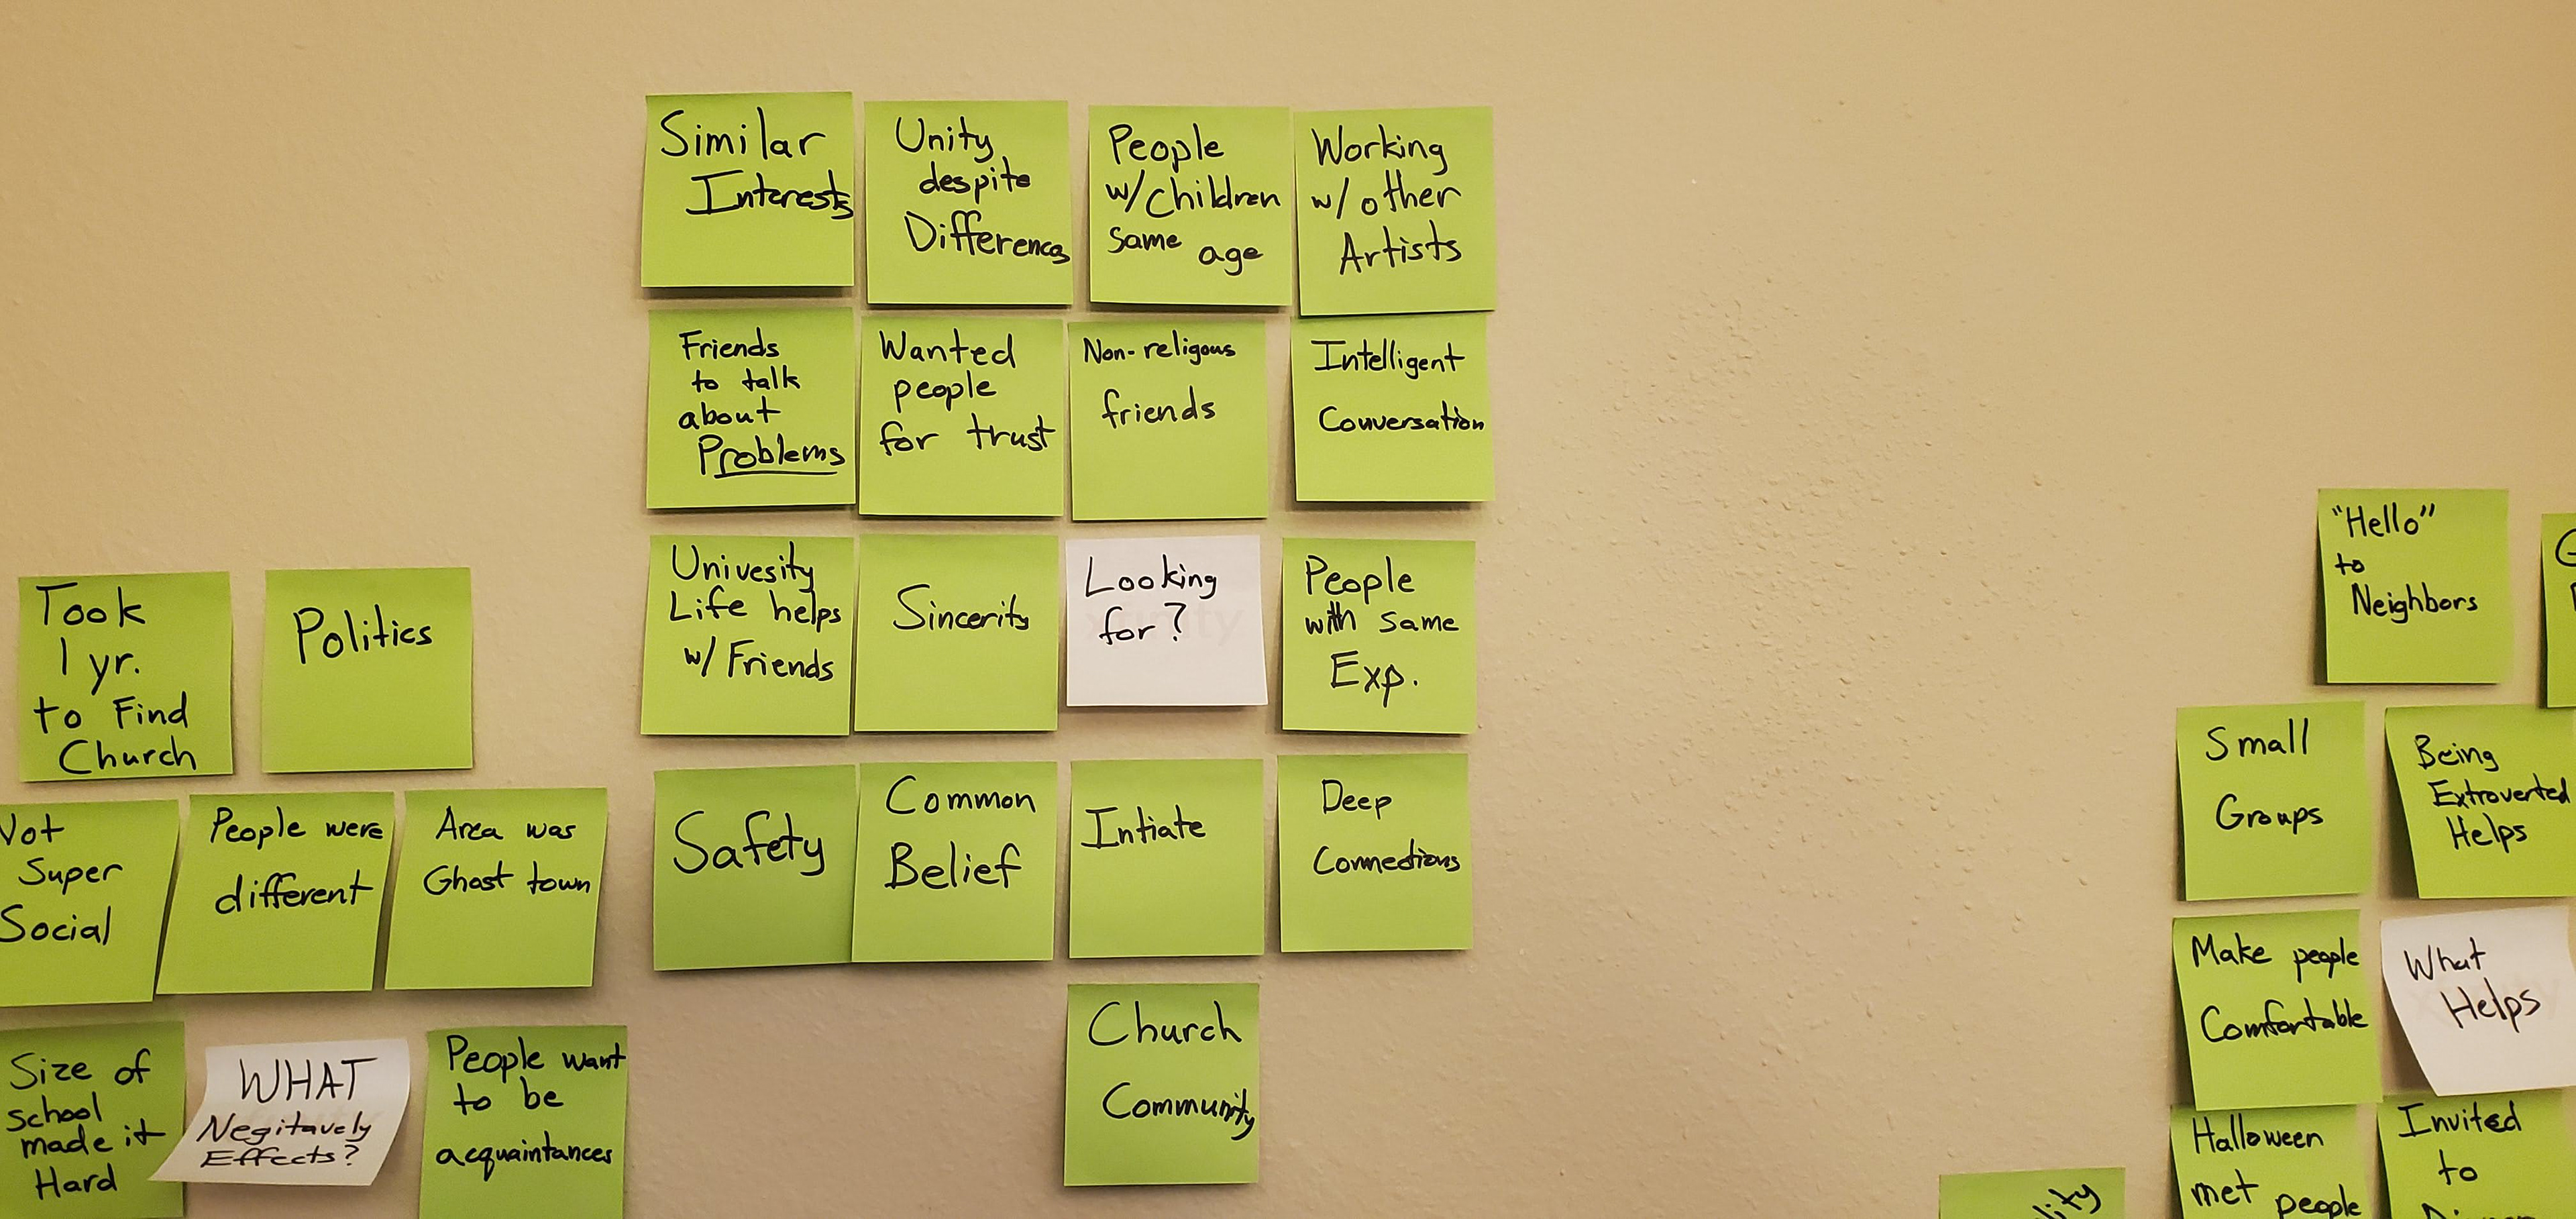 Similar
Interests
Unity
despite
Differences
People
w/children
same age
Working
w/other
Artists
Friends
to talk
about
Problems
Wanted
people
for trust
Non-religous
friends
Intelligent
Conversation
Univesity
Life helps
w/ Friends
Sincerity
Looking
for?
People
with same
Exp.
Safety
Common
Belief
Intiate
Deep
Connections
Church
Community
Took
1 yr.
to Find
Church
Politics
Not
Super
Social
People were
different
Area was
Ghost town
Size of
school
made it
Hard
WHAT
Negitavely
Effects?
People want
to be
acquaintances
"Hello"
to
Neighbors
Small
Groups
Being
Extroverted
Helps
Make people
Comfortable
What
Helps
Halloween
met people
Invited
to